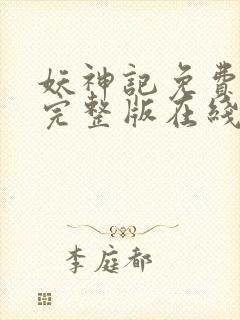 妖神記免費
完整版在綫
李庭都